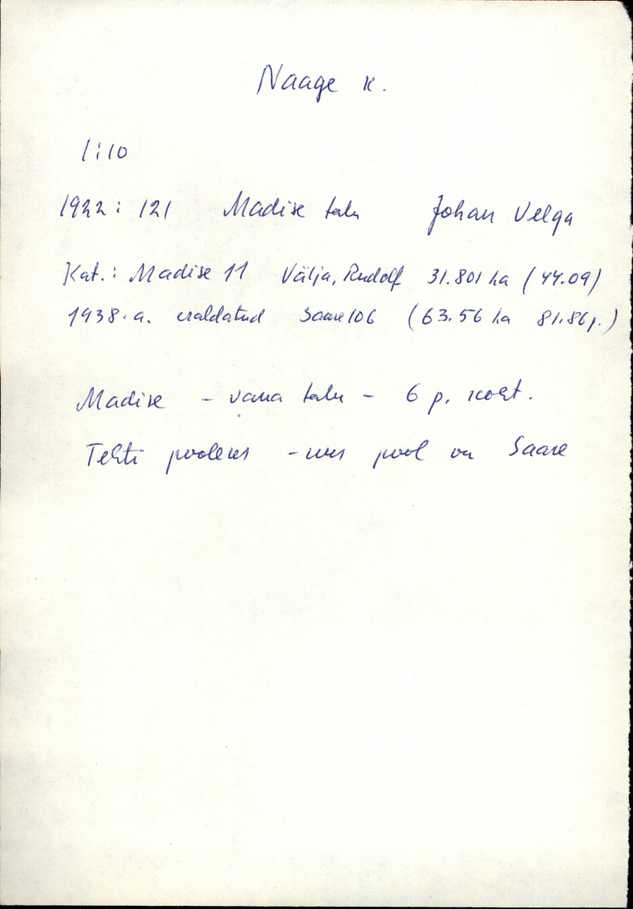 Naage k.
1:10
1922: 121 Madise talu Johan Velga
Kat.: Madise 11 Välja, Rudolf 31.801 ha (44.09)
1938.a. eraldatud Saare 106 (63.56 ha 81.86p.)
Madise - vana talu - 6 p. koht.
Tehti pooleks - uus pool on Saare